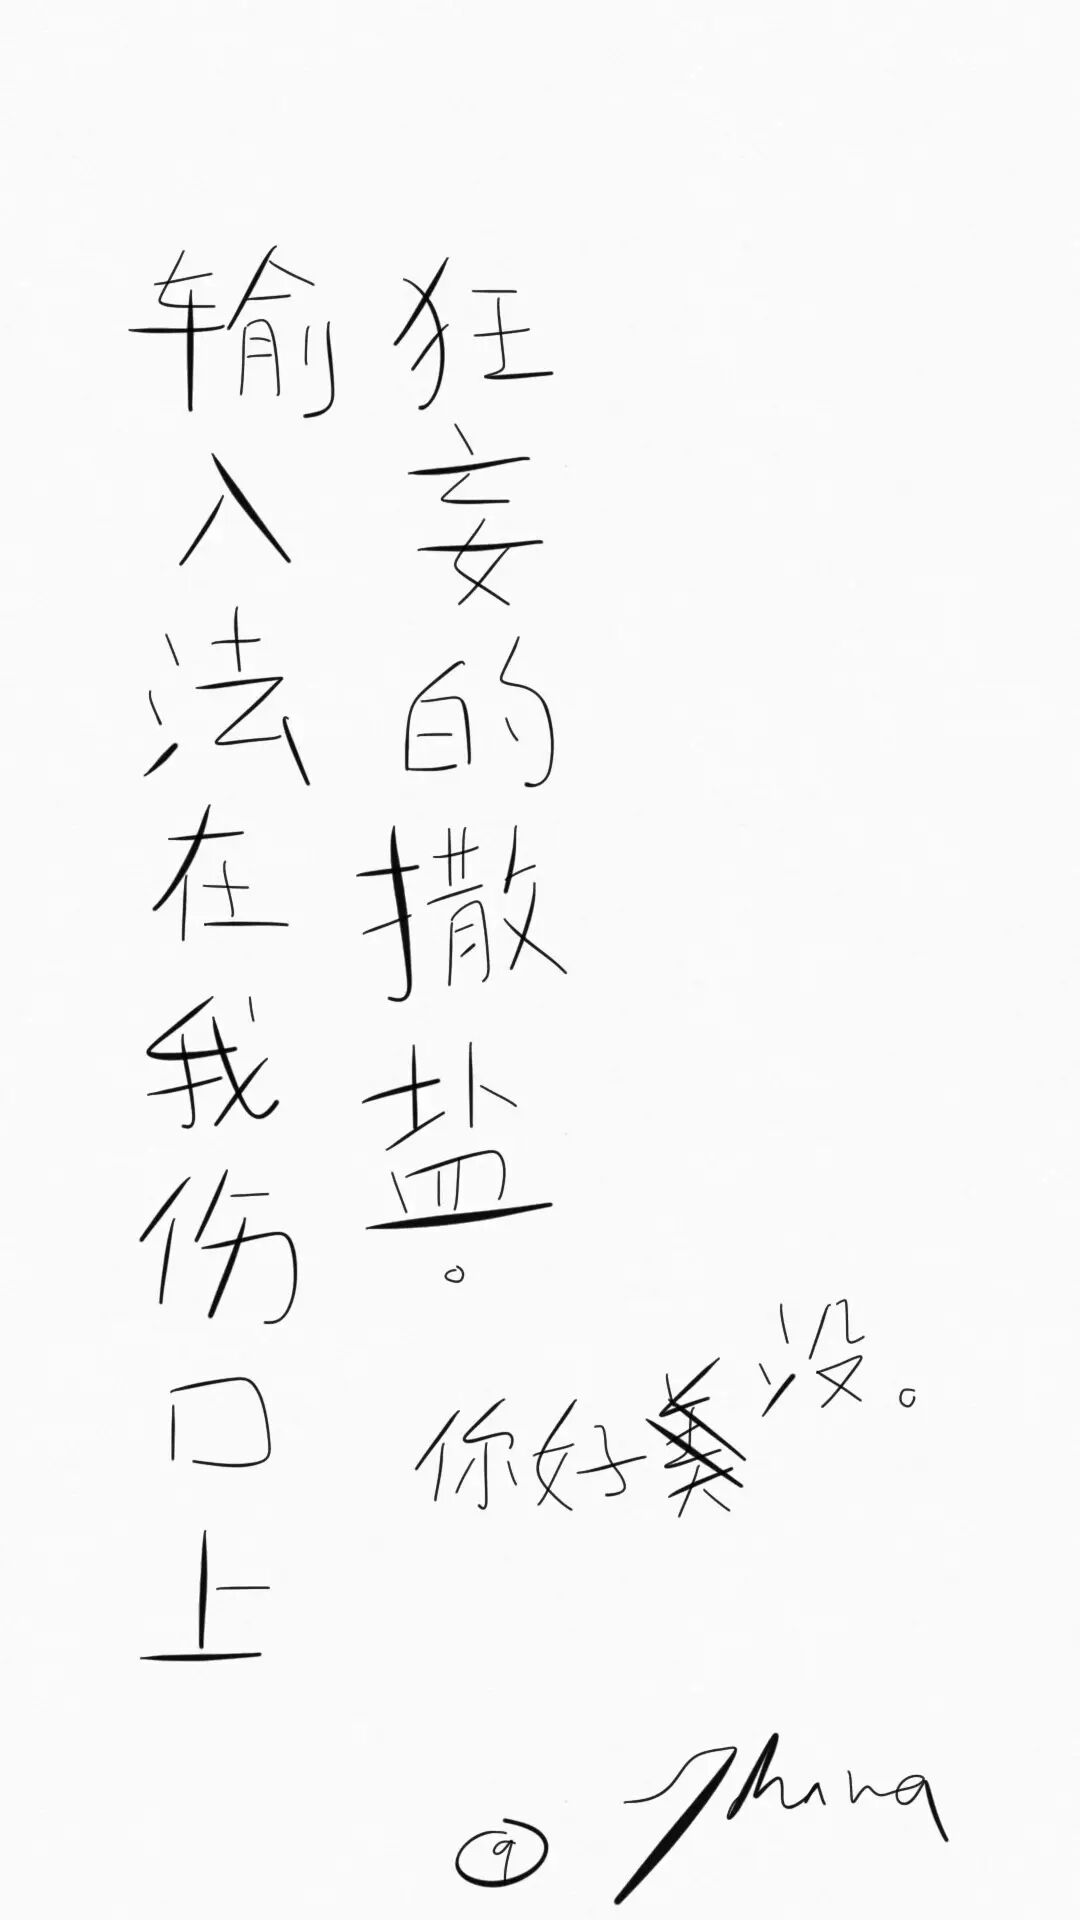 输入法在我伤口上
狂妄的撒盐。
你好美没。
⑨